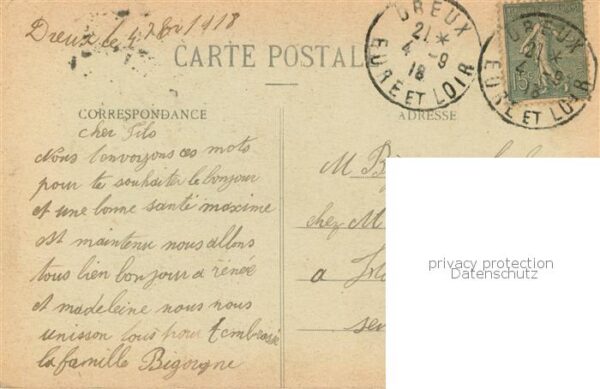 Dreux le 4 7bre 1918
CARTE POSTALE
DREUX
21 *
4 - 9
18
EURE ET LOIR
DREUX
21 *
4 - 9
18
EURE ET LOIR
15
CORRESPONDANCE
cher Fils
Nous t'envoyons ces mots
pour te souhaiter le bonjour
et une bonne santé maxime
est maintenu nous allons
tous bien bonjour a rénée
et madeleine nous nous
unisson tous pour t'embrassé
la famille Bigorgne
ADRESSE
M
chez M
a
privacy protection
Datenschutz